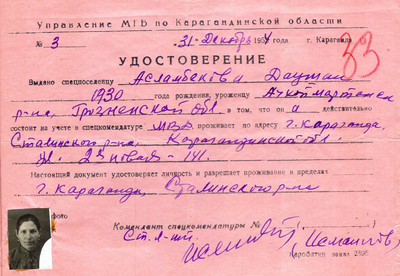 Управление МГБ по Карагандинской области
№ 3 31 Декабрь 1954 года г. Караганда
33
УДОСТОВЕРЕНИЕ
Выдано спецпоселенцу Асламбекова Даушан
1930 года рождения, уроженцу Ачхоймартановск
р-на, Грозненской обл. в том, что он а действительно
состоит на учете в спецкомендатуре МВД проживает по адресу г. Караганда,
Сталинского р-на, Карагандинской обл
Настоящий документ удостоверяет личность и разрешает проживание в пределах
г. Караганды, Сталинского р-на
фото
Комендант спецкомендатуры №
Ст. л-нт (Исмаилов)
Каробптип заказ 2596